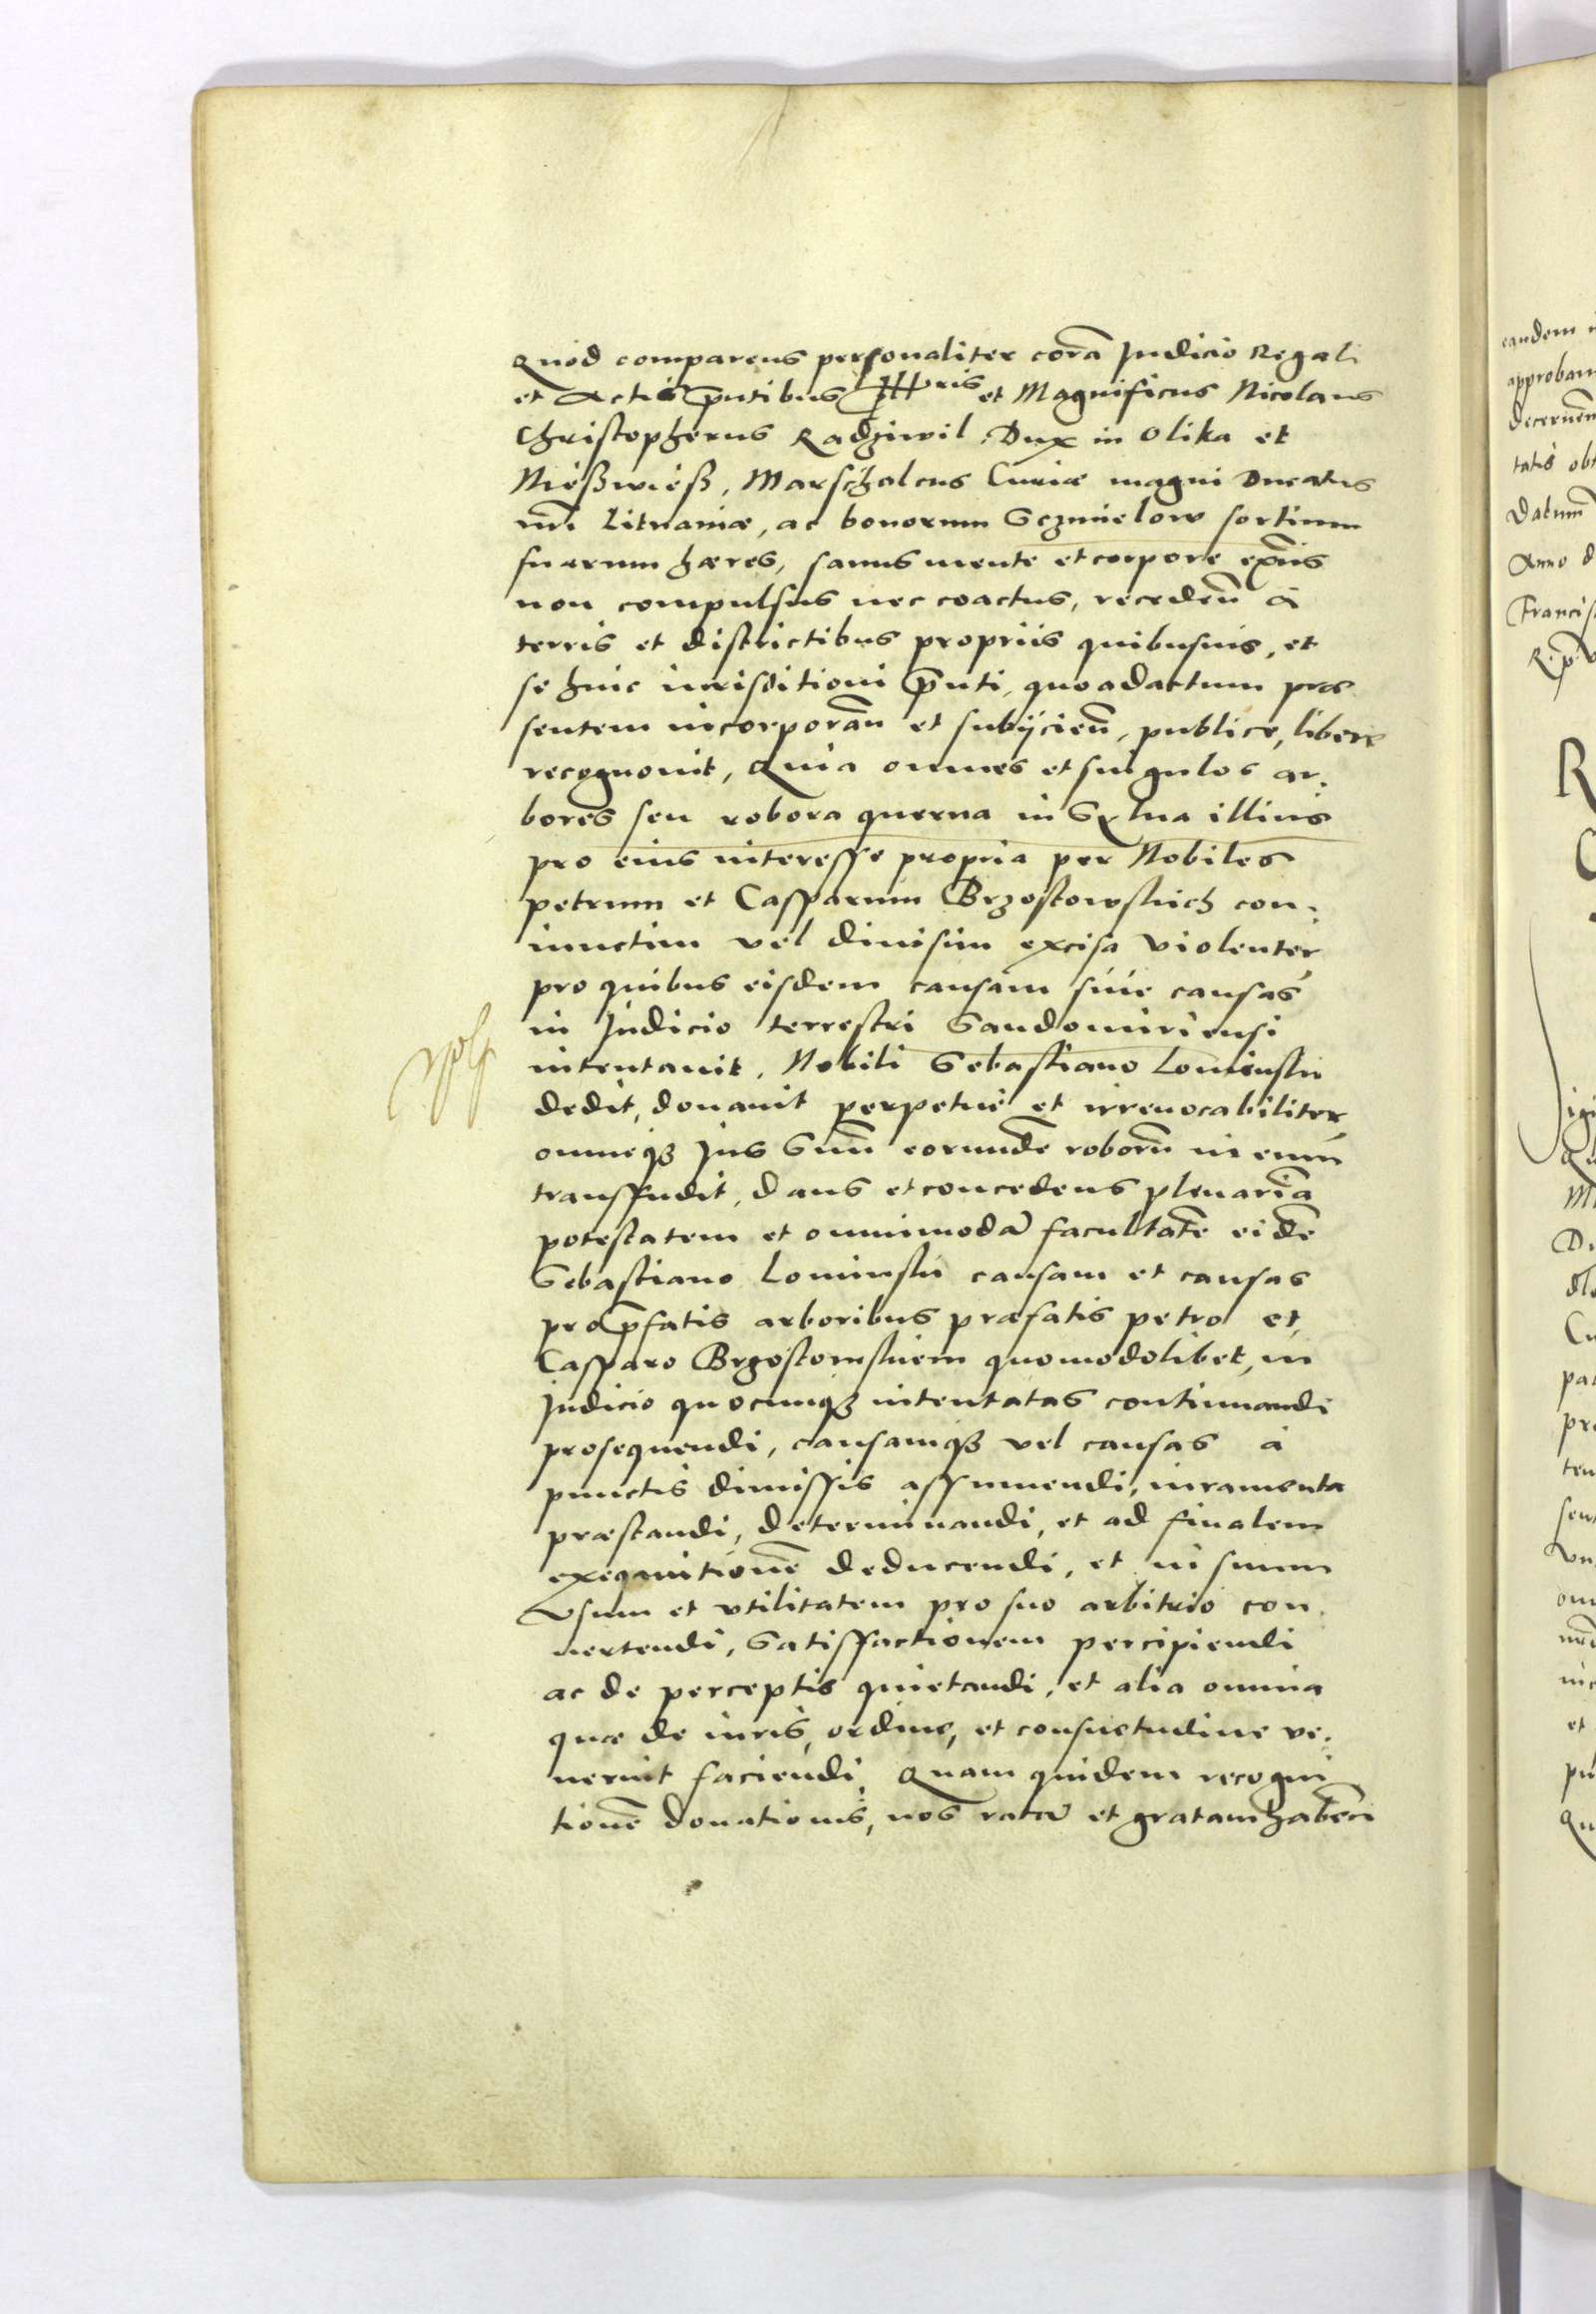 Quod comparens personaliter corā Judicio Regali
et Actis p̄ntibus Illris et Magnificus Nicolaus
Christopherus Radziwil, Dux in Olika et
Nießwieß, Marschalcus Curiæ magni Ducatus
nr̄i Lituaniæ, ac bonorum Sczmielow sortium
suarum hæres, sanus mente et corpore exn̄s
non compulsus nec coactus, recedeñ à
terris et districtibus propriis quibusuis, et
se huic iurisditioni p̄nti, quo ad actum præ
sentem incorporañ et subijcieñ, publice, libere
recognouit, Quia omnes et singulos ar,
bores seu robora querna in Sylua illius
pro eius interesse propria per Nobiles
Petrum et Casparum Brzostowskich con,
iunctim vel diuisim excisa violenter
pro quibus eisdem causam siue causas
in Judicio terrestri Sandomiriensi
intentauit, Nobili Sebastiano Lominski
dedit, donauit perpetue et irreuocabiliter
omneqʒ Jus Suū eorundē roborū in eum
transfudit, dans et concedens plenariā
potestatem et omnimodā facultatē eidē
Sebastiano Lominski causam et causas
pro p̄fatis arboribus præfatis Petro et
Casparo Brzostowskiem quomodolibet, in
Judicio quocumqʒ intentatas continuandi
prosequendi, causamqʒ vel causas à
punctis dimissis assumendi, iuramenta
præstandi, determinandi, et ad finalem
exequutionē deducendi, et in suum
vsum et vtilitatem pro suo arbitrio con,
uertendi, Satisfactionem percipiendi
ac de perceptis quietandi, et alia omnia
quæ de iuris, ordine, et consuetudine ve,
nerint faciendi, Quam quidem recogni
tionē donationis, nos ratā et gratam habeñ